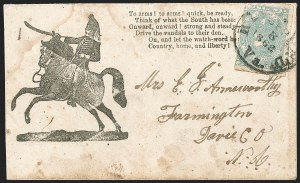 To arms! to arms! quick, be ready,
Think of what the South has been;
Onward, onward! strong and steady
Drive the vandals to their den.
On, and let the watch-word be
Country, home, and liberty!
Mrs C. E.
Farmington
Davie Co
N. C.